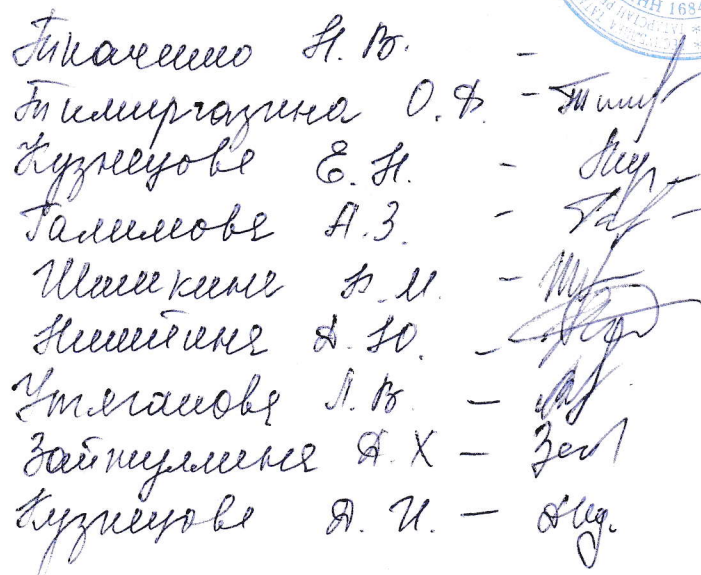 ИНН 1684
Ткаченко Н. В. -
Тимиргазина О. Ф. - Тими
Кузнецова Е. Н. -
Галимова А. З. -
Шишкина Н. М. -
Никитина А. Ю. -
Утяганова Л. В. -
Зайнуллина А. Х -
Кузнецова А. И. -